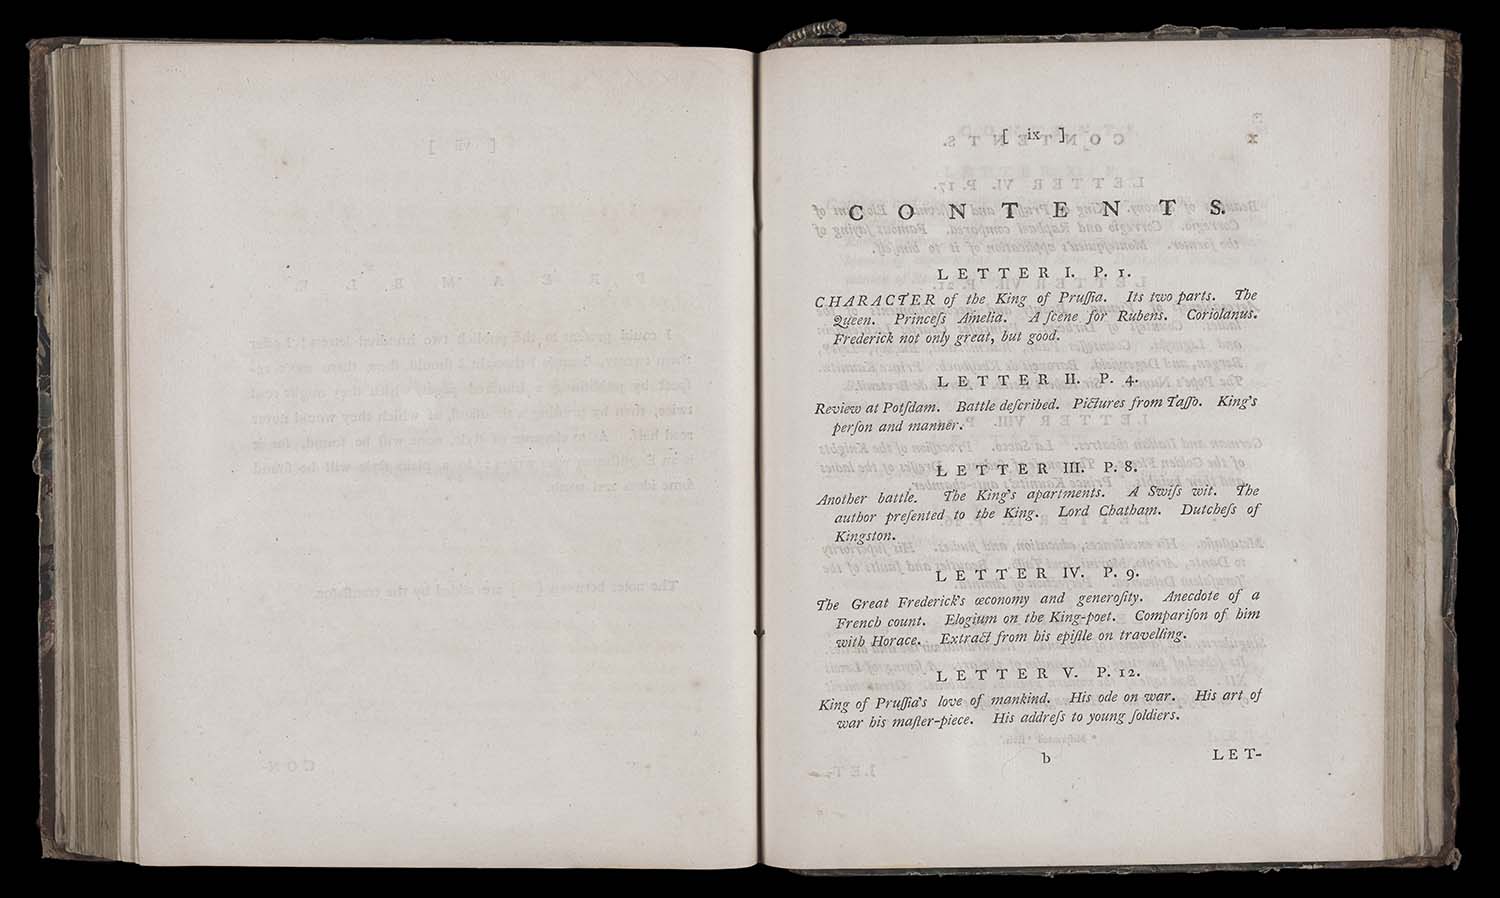 [ ix ]
C O N T E N T S.
L E T T E R I. P. 1.
CHARACTER of the King of Pruſſia. Its two parts. The
Queen. Princeſs Amelia. A ſcene for Rubens. Coriolanus.
Frederick not only great, but good.
L E T T E R II. P. 4.
Review at Potſdam. Battle deſcribed. Pictures from Taſſo. King's
perſon and manner.
L E T T E R III. P. 8.
Another battle. The King's apartments. A Swiſs wit. The
author preſented to the King. Lord Chatham. Dutcheſs of
Kingston.
L E T T E R IV. P. 9.
The Great Frederick's œconomy and generoſity. Anecdote of a
French count. Elogium on the King-poet. Compariſon of him
with Horace. Extract from his epiſtle on travelling.
L E T T E R V. P. 12.
King of Pruſſia's love of mankind. His ode on war. His art of
war his maſter-piece. His addreſs to young ſoldiers.
b LET-